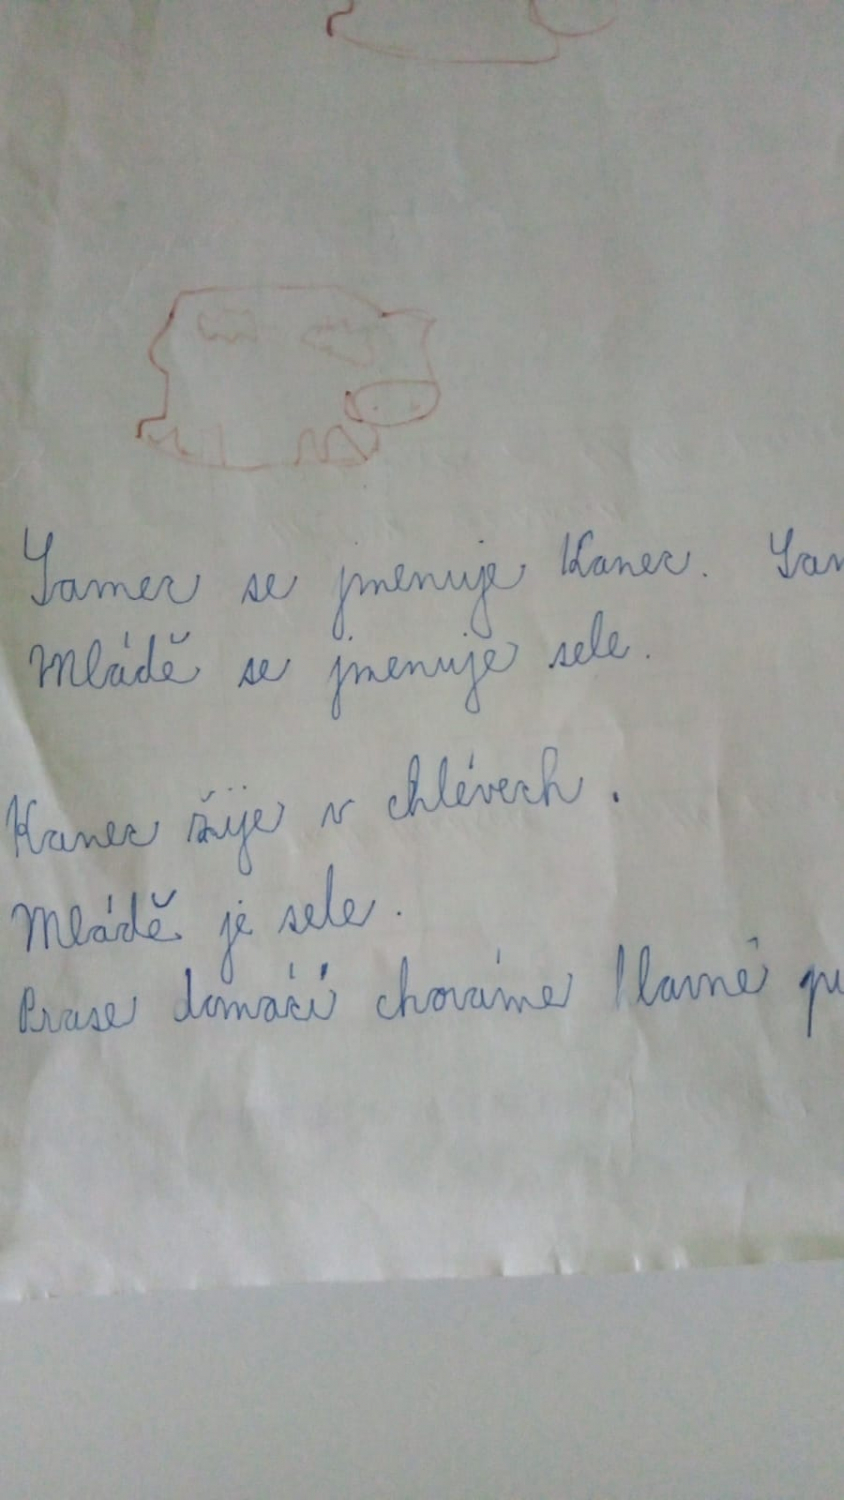 Samec se jmenuje Kanec. Sam
Mládě se jmenuje sele.
Kanec žije v chlévech.
Mládě je sele.
Prase domácí chováme hlavně